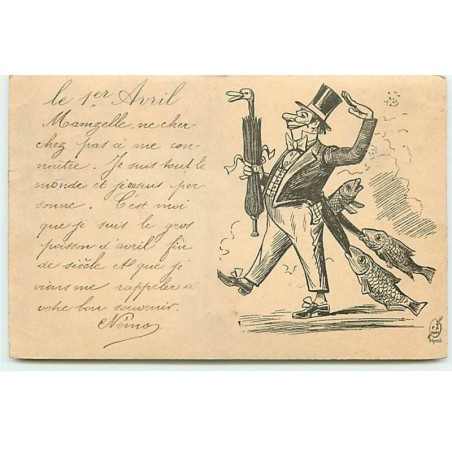 le 1er Avril
Mamzelle, ne cher-
chez pas à me con-
naître. Je suis tout le
monde et je suis per-
sonne. C'est moi
que je suis le gros
poisson d'avril fin
de siècle et que je
viens me rappeler à
votre bon souvenir.
Némo